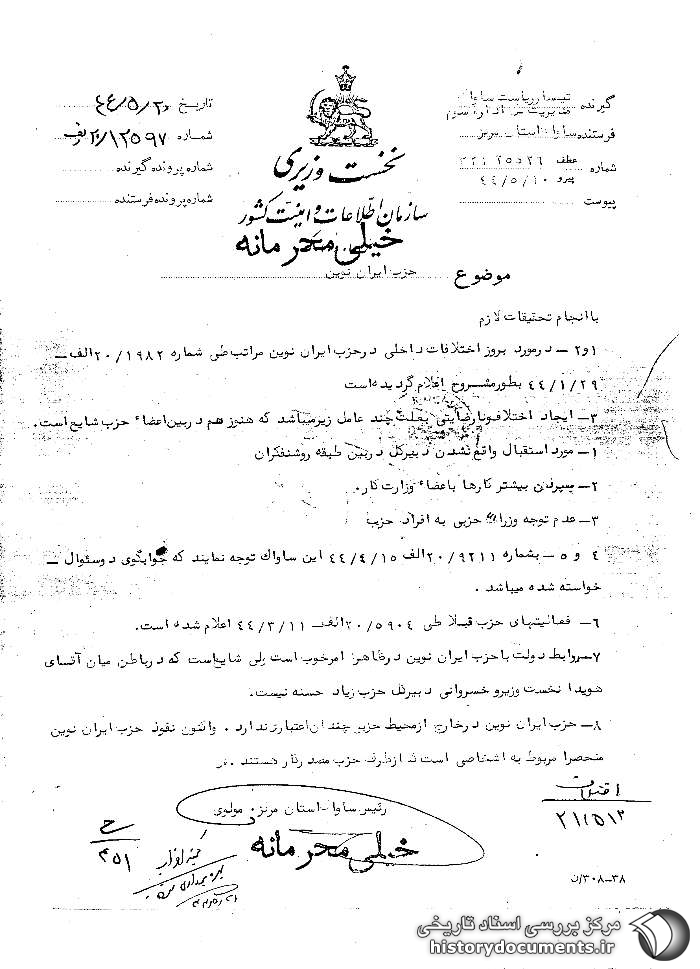 گیرنده تیمسار ریاست ساواک
مدیریت کل اداره سوم
فرستنده ساواک استان مرکز
شماره عطف ۳۳۱ ۲۵۵۲۶
پیرو ۴۴/۵/۱۰
پیوست
تاریخ ۴۴/۵/۲۰
شماره ۲۰/۱۲۵۹۷ الف
شماره پرونده گیرنده
شماره پرونده فرستنده
نخست وزیری
سازمان اطلاعات و امنیت کشور
خیلی محرمانه
موضوع حزب ایران نوین
با انجام تحقیقات لازم
۱و۲ – در مورد بروز اختلافات داخلی در حزب ایران نوین مراتب طی شماره ۲۰/۱۹۸۲الف –
۴۴/۱/۲۹ بطور مشروح اعلام گردیده است
۳– ایجاد اختلاف و نارضایتی بعلت چند عامل زیر میباشد که هنوز هم در بین اعضاء حزب شایع است.
۱– مورد استقبال واقع نشدن دبیرکل در بین طبقه روشنفکران
۲– سپردن بیشتر کارها باعضاء وزارت کار.
۳– عدم توجه وزراء حزبی به افراد حزب
۴ و ۵ – بشماره ۲۰/۹۲۱۱الف ۴۴/۴/۱۵ این ساواک توجه نمایند که جوابگوی دو سئوال –
خواسته شده میباشد .
۶– فعالیتهای حزب قبلا طی ۲۰/۵۹۰۴الف– ۴۴/۳/۱۱ اعلام شده است.
۷– روابط دولت با حزب ایران نوین در ظاهر امر خوب است ولی شایع است که در باطن میان آقای
هویدا نخست وزیر و خسروانی دبیرکل حزب زیاد حسنه نیست.
۸– حزب ایران نوین در خارج از محیط حزبی چندان اعتباری ندارد . واکنون نفوذ حزب ایران نوین
منحصرا مربوط به اشخاصی است که از طرف حزب مصدر کار هستند .
رئیس ساواک استان مرکز. مولوی
خیلی محرمانه
۳۸–۳۰۸/ن
مرکز بررسی اسناد تاریخی
historydocuments.ir